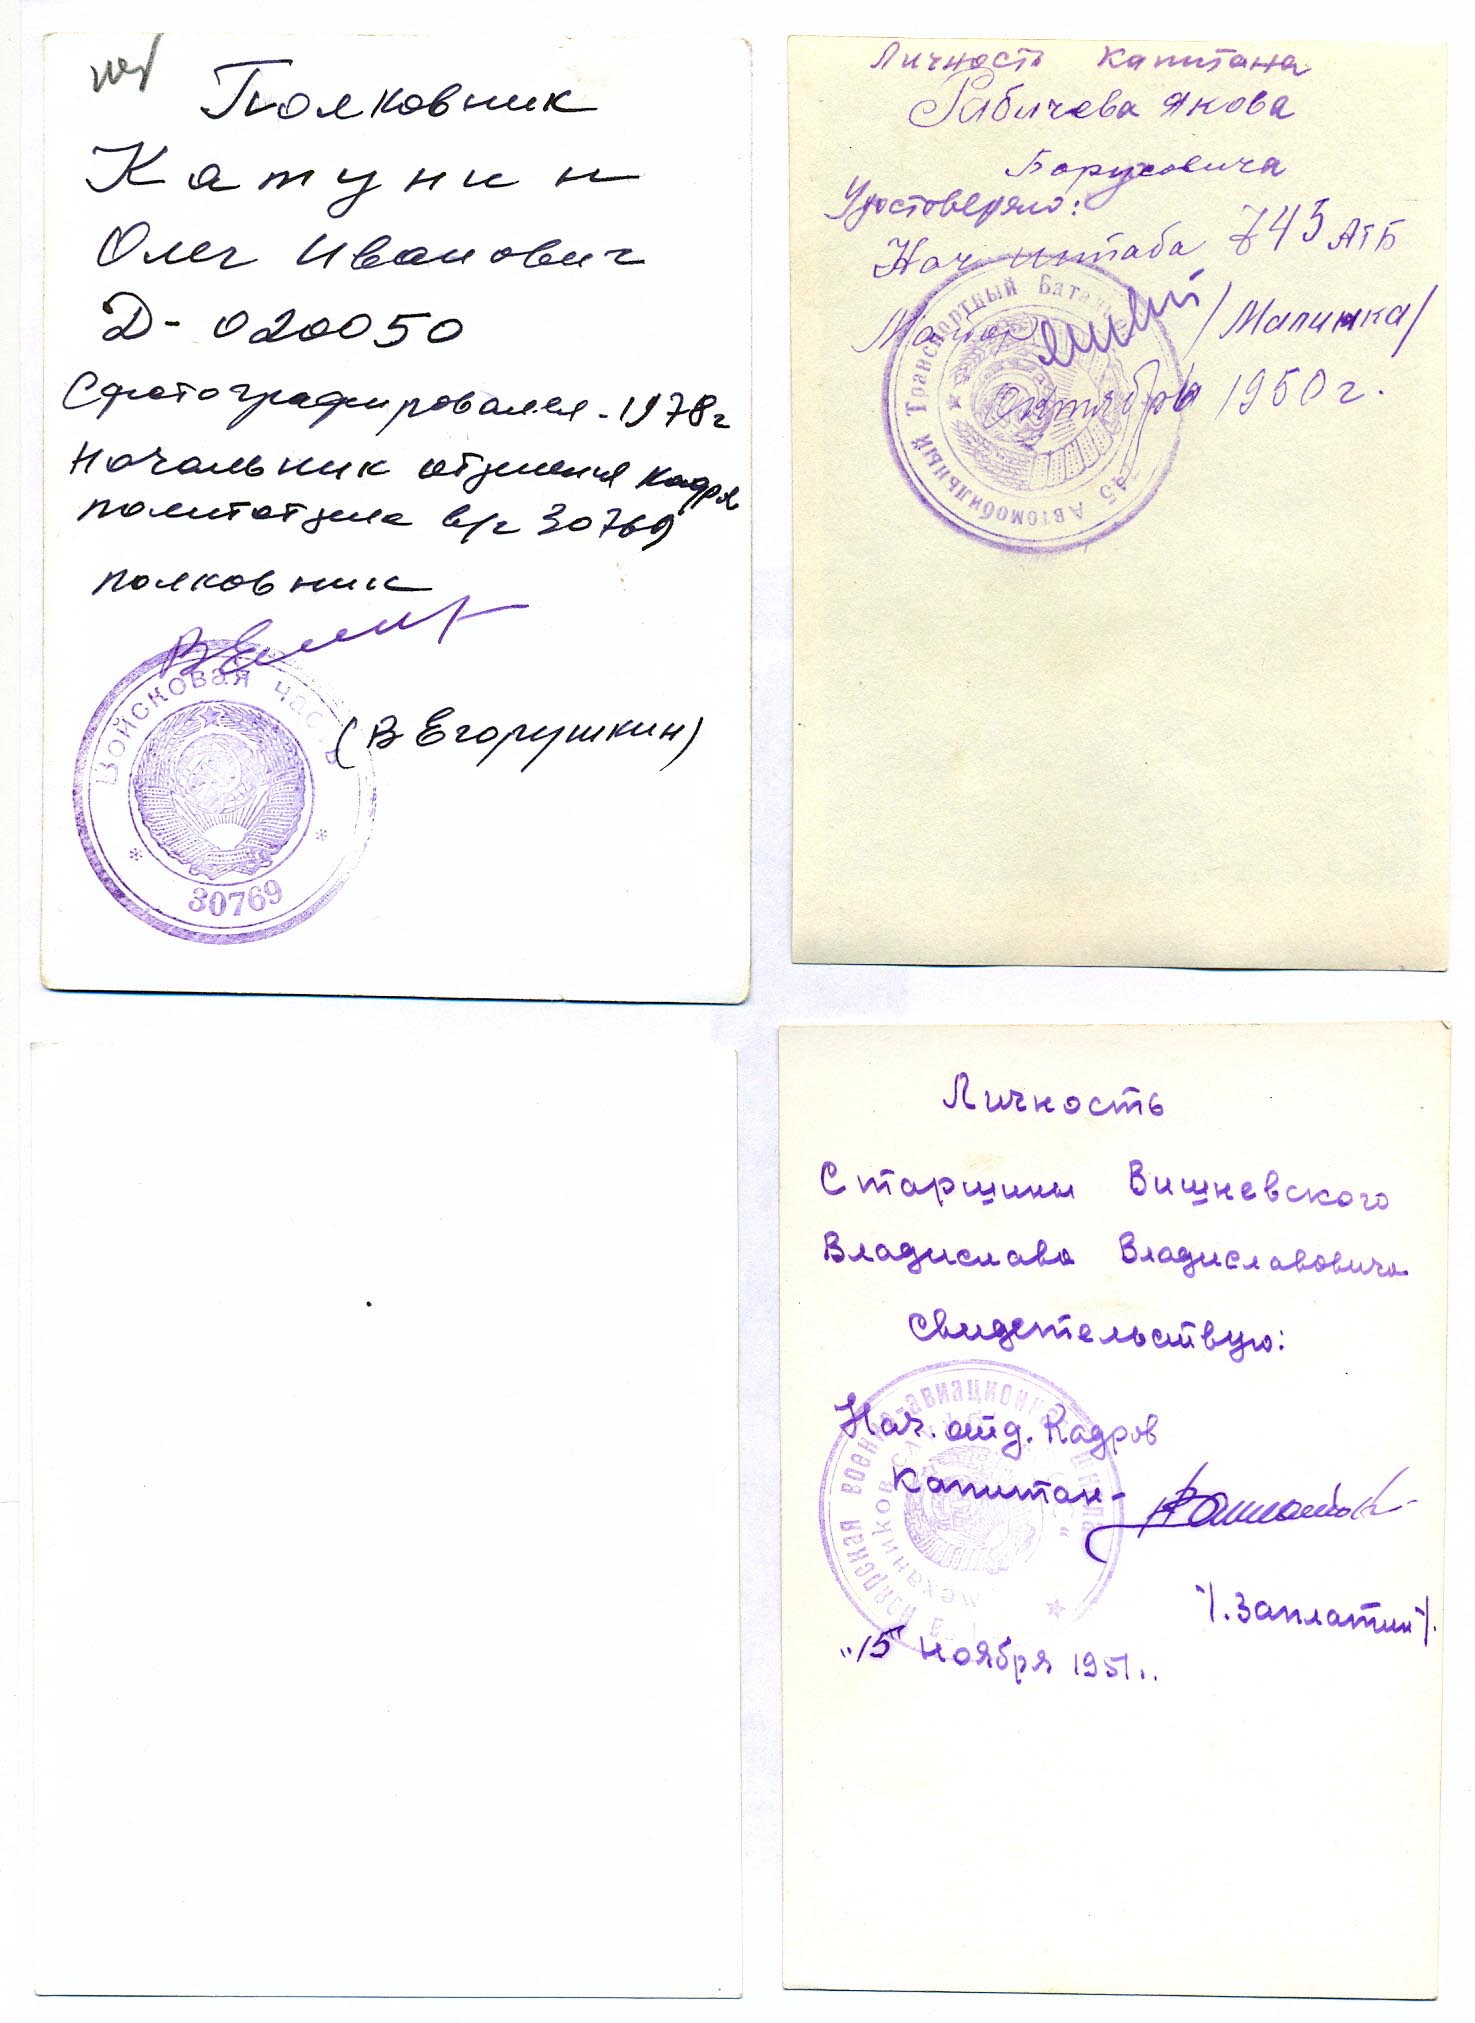 Полковник
Катунин
Олег Иванович
Д-020050
Сфотографировался - 1978г
Начальник отделения кадров
политотдела в/ч 30769
полковник
(В Егорушкин)
Войсковая часть
30769
Личность Капитана
Рабичева Якова
Боруховича
Удостоверяю:
Нач. штаба 745 АТБ
Майор /Малинка/
Октябрь 1950 г.
745 Автомобильный Транспортный Батальон
Личность
Старшины Вишневского
Владислава Владиславовича
свидетельствую:
Нач. отд. Кадров
Капитан-
/.Заплатин/.
"15" ноября 1951..
военно-авиационная школа
механиков